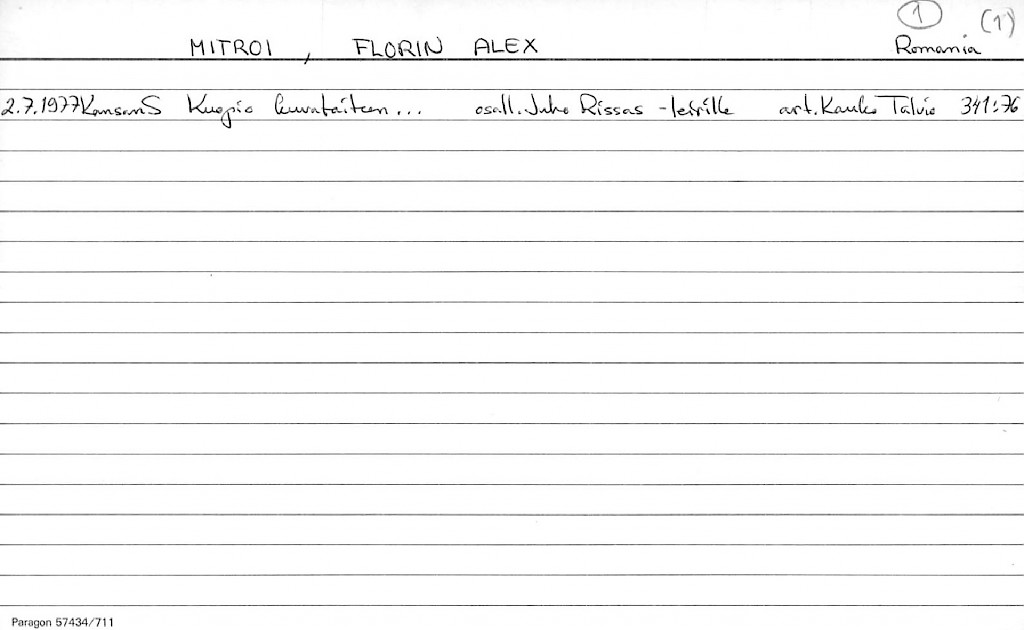 1 (1)
MITROI, FLORIN ALEX Romania
2.7.1977 KansanS Kuopio kuvataiteen... osall. Juho Rissas -leirille art. Kauko Talvio 341:76
Paragon 57434/711